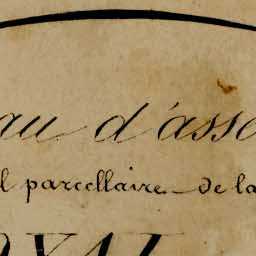 au d'asse
l parcellaire de la
OYAL